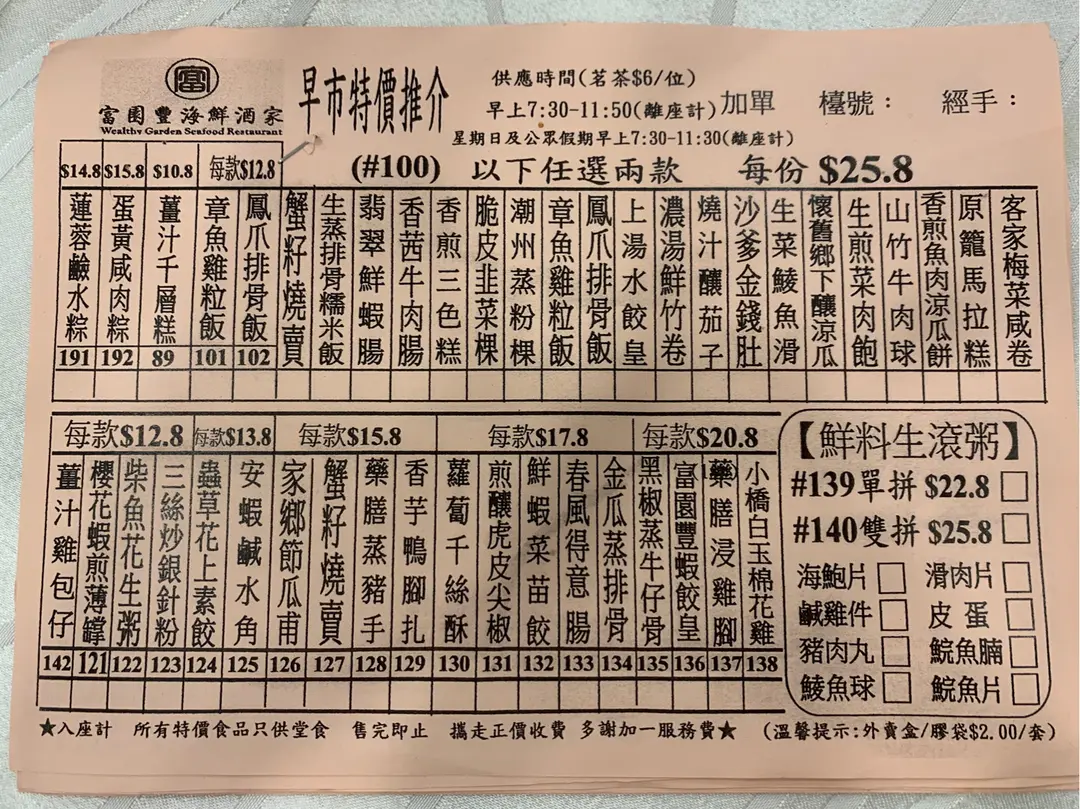 富園豐海鮮酒家
Wealthy Garden Seafood Restaurant
早市特價推介
供應時間(茗茶$6/位)
早上7:30-11:50(離座計)
星期日及公眾假期早上7:30-11:30(離座計)
加單 檯號： 經手：
$14.8 $15.8 $10.8 每款$12.8
(#100) 以下任選兩款 每份 $25.8
蓮蓉鹼水粽
蛋黃咸肉粽
薑汁千層糕
章魚雞粒飯
鳳爪排骨飯
蟹籽燒賣
生蒸排骨糯米飯
翡翠鮮蝦腸
香茜牛肉腸
香煎三色糕
脆皮韭菜粿
潮州蒸粉粿
章魚雞粒飯
鳳爪排骨飯
上湯水餃皇
濃湯鮮竹卷
燒汁釀茄子
沙爹金錢肚
生菜鯪魚滑
懷舊鄉下釀涼瓜
生煎菜肉飽
山竹牛肉球
香煎魚肉涼瓜餅
原籠馬拉糕
客家梅菜咸卷
191 192 89 101 102
每款$12.8 每款$13.8 每款$15.8 每款$17.8 每款$20.8
薑汁雞包仔
櫻花蝦煎薄罉
柴魚花生粥
三絲炒銀針粉
蟲草花上素餃
安蝦鹹水角
家鄉節瓜甫
蟹籽燒賣
藥膳蒸豬手
香芋鴨腳扎
蘿蔔千絲酥
煎釀虎皮尖椒
鮮蝦菜苗餃
春風得意腸
金瓜蒸排骨
黑椒蒸牛仔骨
富園豐蝦餃皇
藥膳浸雞腳
小橋白玉棉花雞
142 121 122 123 124 125 126 127 128 129 130 131 132 133 134 135 136 137 138
【鮮料生滾粥】
#139單拼 $22.8
#140雙拼 $25.8
海鮑片 滑肉片
鹹雞件 皮蛋
豬肉丸 鯇魚腩
鯪魚球 鯇魚片
★入座計 所有特價食品只供堂食 售完即止 攜走正價收費 多謝加一服務費★ (溫馨提示:外賣盒/膠袋$2.00/套)